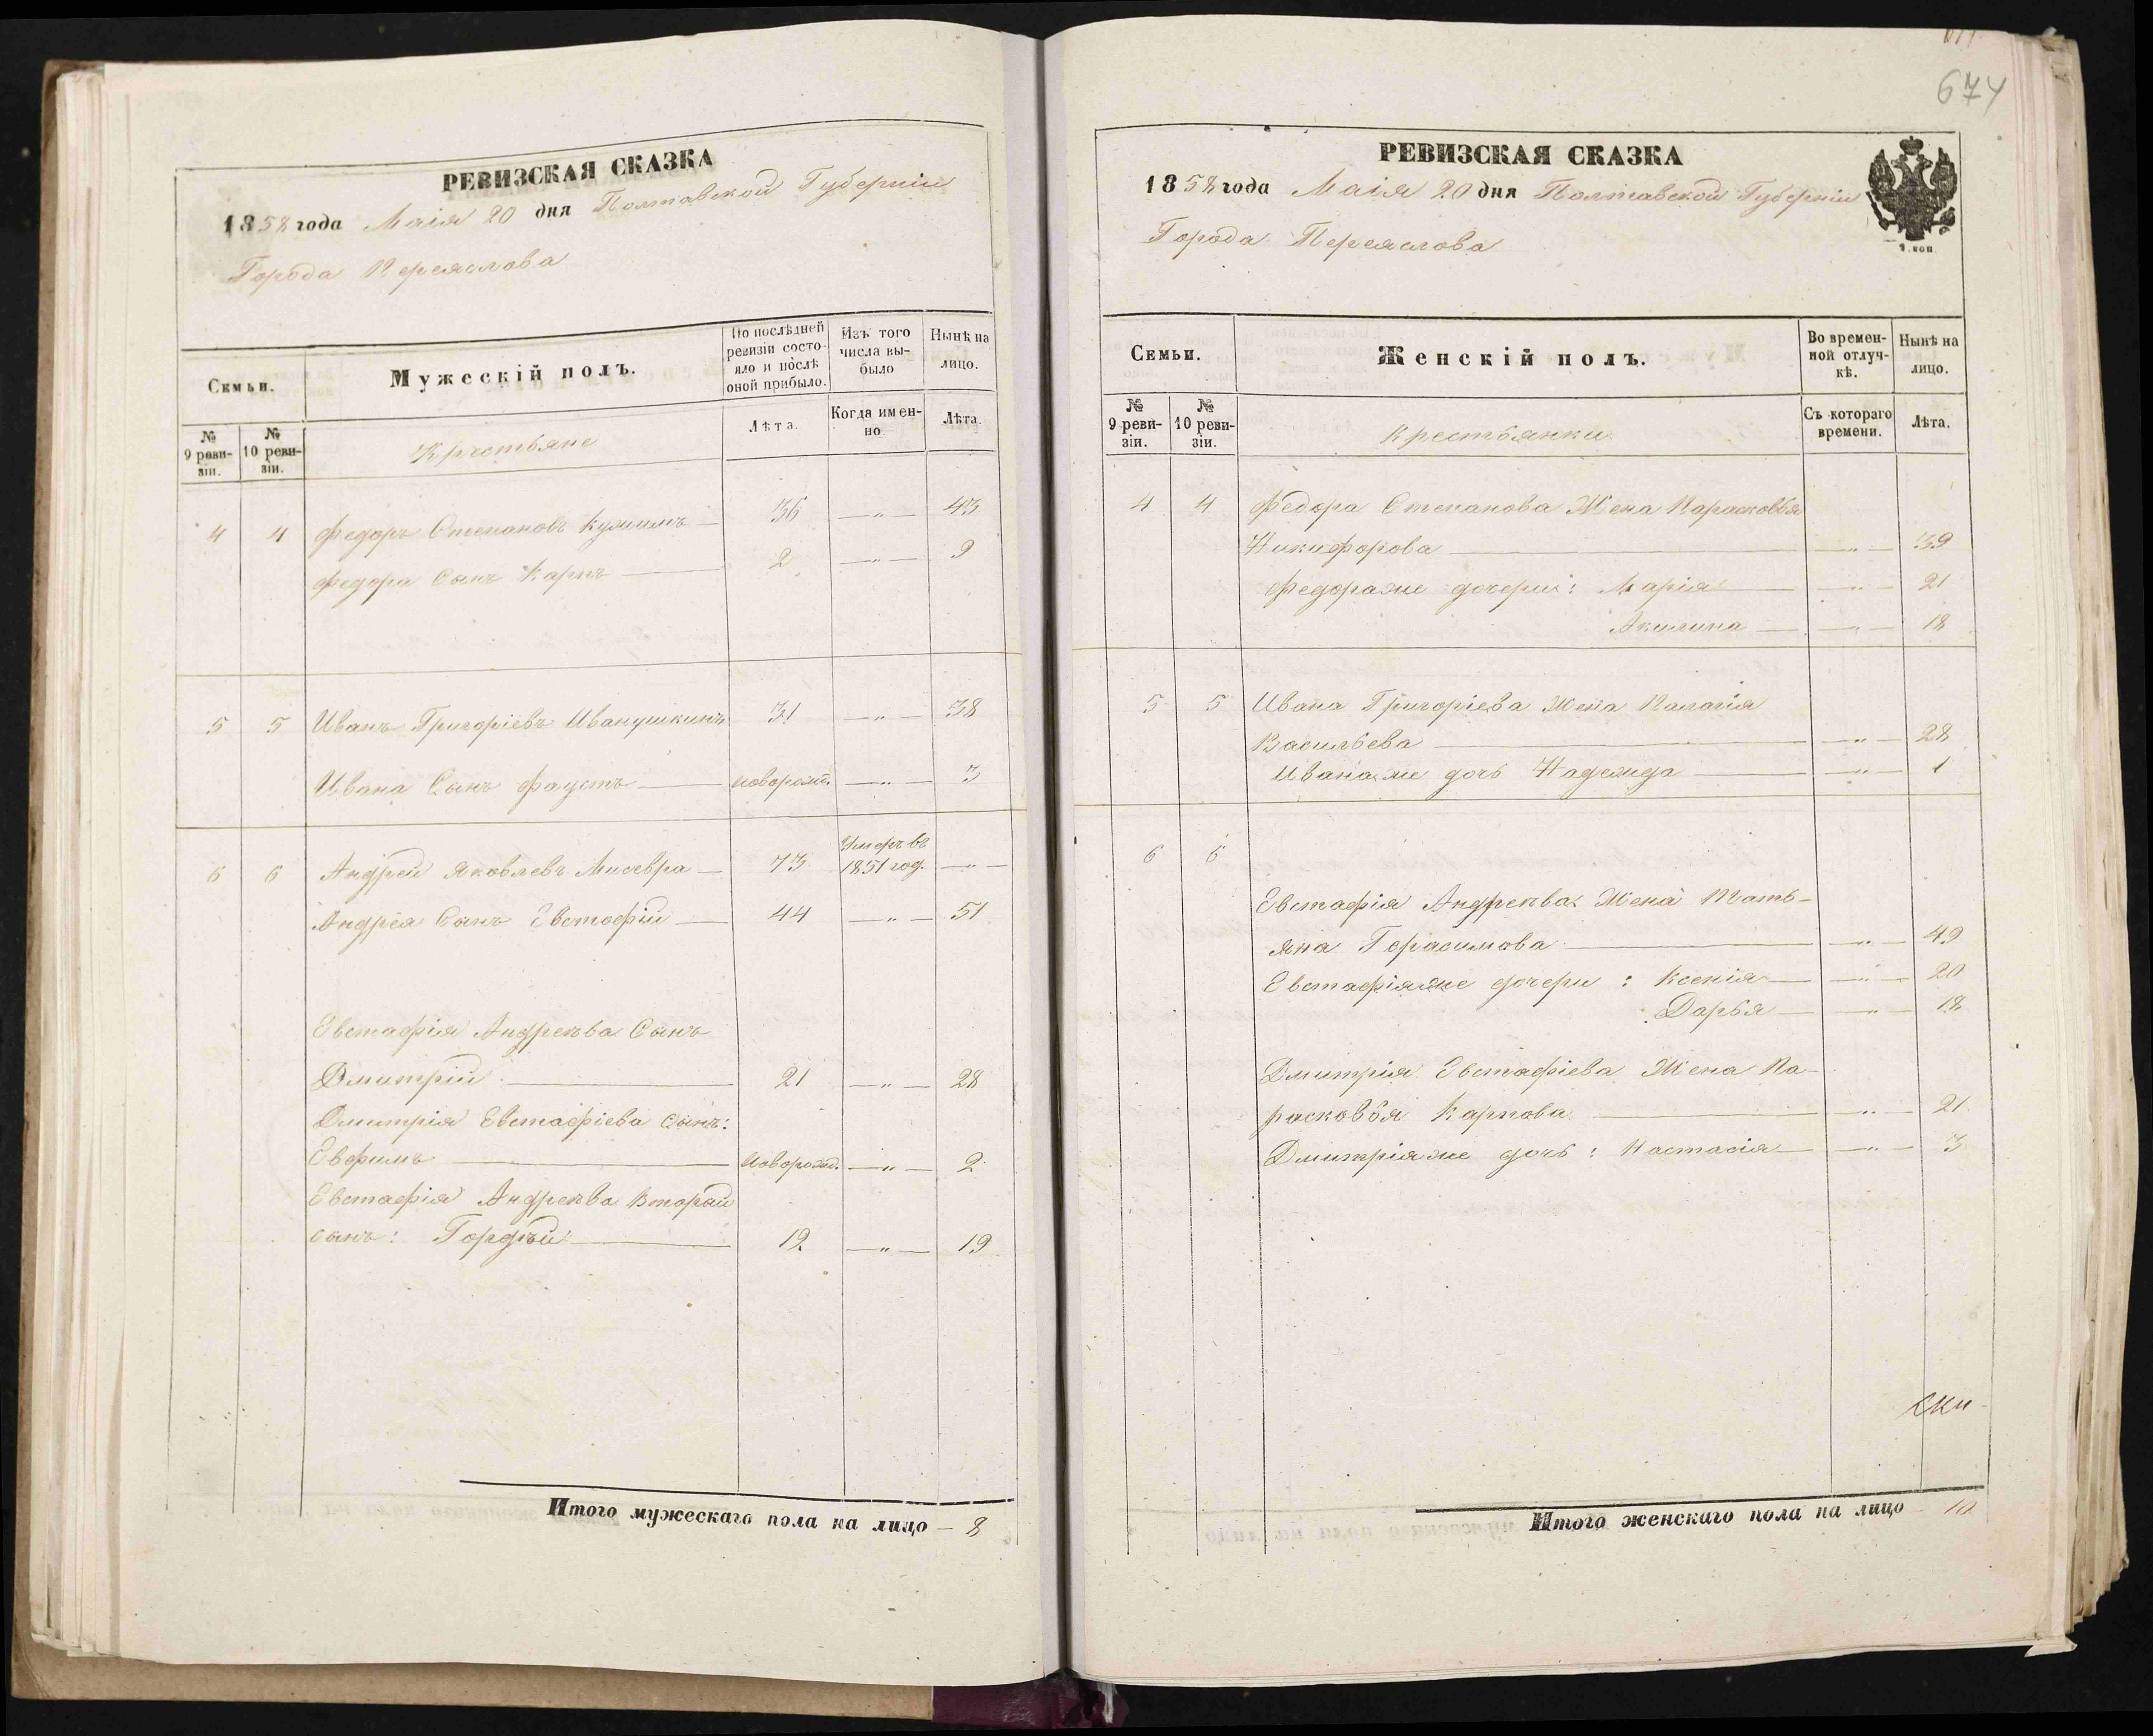 РЕВИЗСКАЯ СКАЗКА
1858 года Маія 20 дня Полтавской Губерніи
Города Переяслова
Семьи.
Мужескій полъ.
По послѣдней ревизіи состояло и послѣ оной прибыло.
Изъ того числа выбыло
Нынѣ на лицо.
№ 9 реви-зіи.
№ 10 реви-зіи.
Крестьяне
Лѣта.
Когда имен-но
Лѣта.
4 4 Федоръ Степановъ 36 — „ — 43
Федора Сынъ Карпъ 2 — „ — 9
5 5 Иванъ Григоріевъ Иванушкинъ 31 — „ — 38
Ивана Сынъ Фаустъ новорожд. — „ — 3
6 6 Андрей Яковлевъ Мисевра 73 Умеръ въ 1851 год. — „ —
Андрея Сынъ Евстафій 44 — „ — 51
Евстафія Андреева Сынъ
Дмитрій 21 — „ — 28
Дмитрія Евстафіева сынъ:
Евфимъ новорожд. — „ — 2
Евстафія Андреева Вторый
сынъ: Гордѣй 12 — „ — 19
Итого мужескаго пола на лицо — 8
674
РЕВИЗСКАЯ СКАЗКА
1858 года Маія 20 дня Полтавской Губерніи
Города Переяслова
9. коп
Семьи.
Женскій полъ.
Во времен-ной отлуч-кѣ.
Нынѣ на лицо.
№ 9 реви-зіи.
№ 10 реви-зіи.
Крестьянки
Съ котораго времени.
Лѣта.
4 4 Федора Степанова Жена Парасковья
Никифорова — „ — 39
Федора же дочери: Марія — „ — 21
Акилина — „ — 18
5 5 Ивана Григоріева Жена Палагія
Васильева — „ — 28
Ивана же дочь Надежда — „ — 1
6 6
Евстафія Андреева Жена Тать-
яна Герасимова — „ — 49
Евстафія же дочери: Ксенія — „ — 20
Дарья — „ — 18
Дмитрія Евстафіева Жена Па-
расковья Карпова — „ — 21
Дмитрія же дочь: Настасія — „ — 3
Итого женскаго пола на лицо — 10